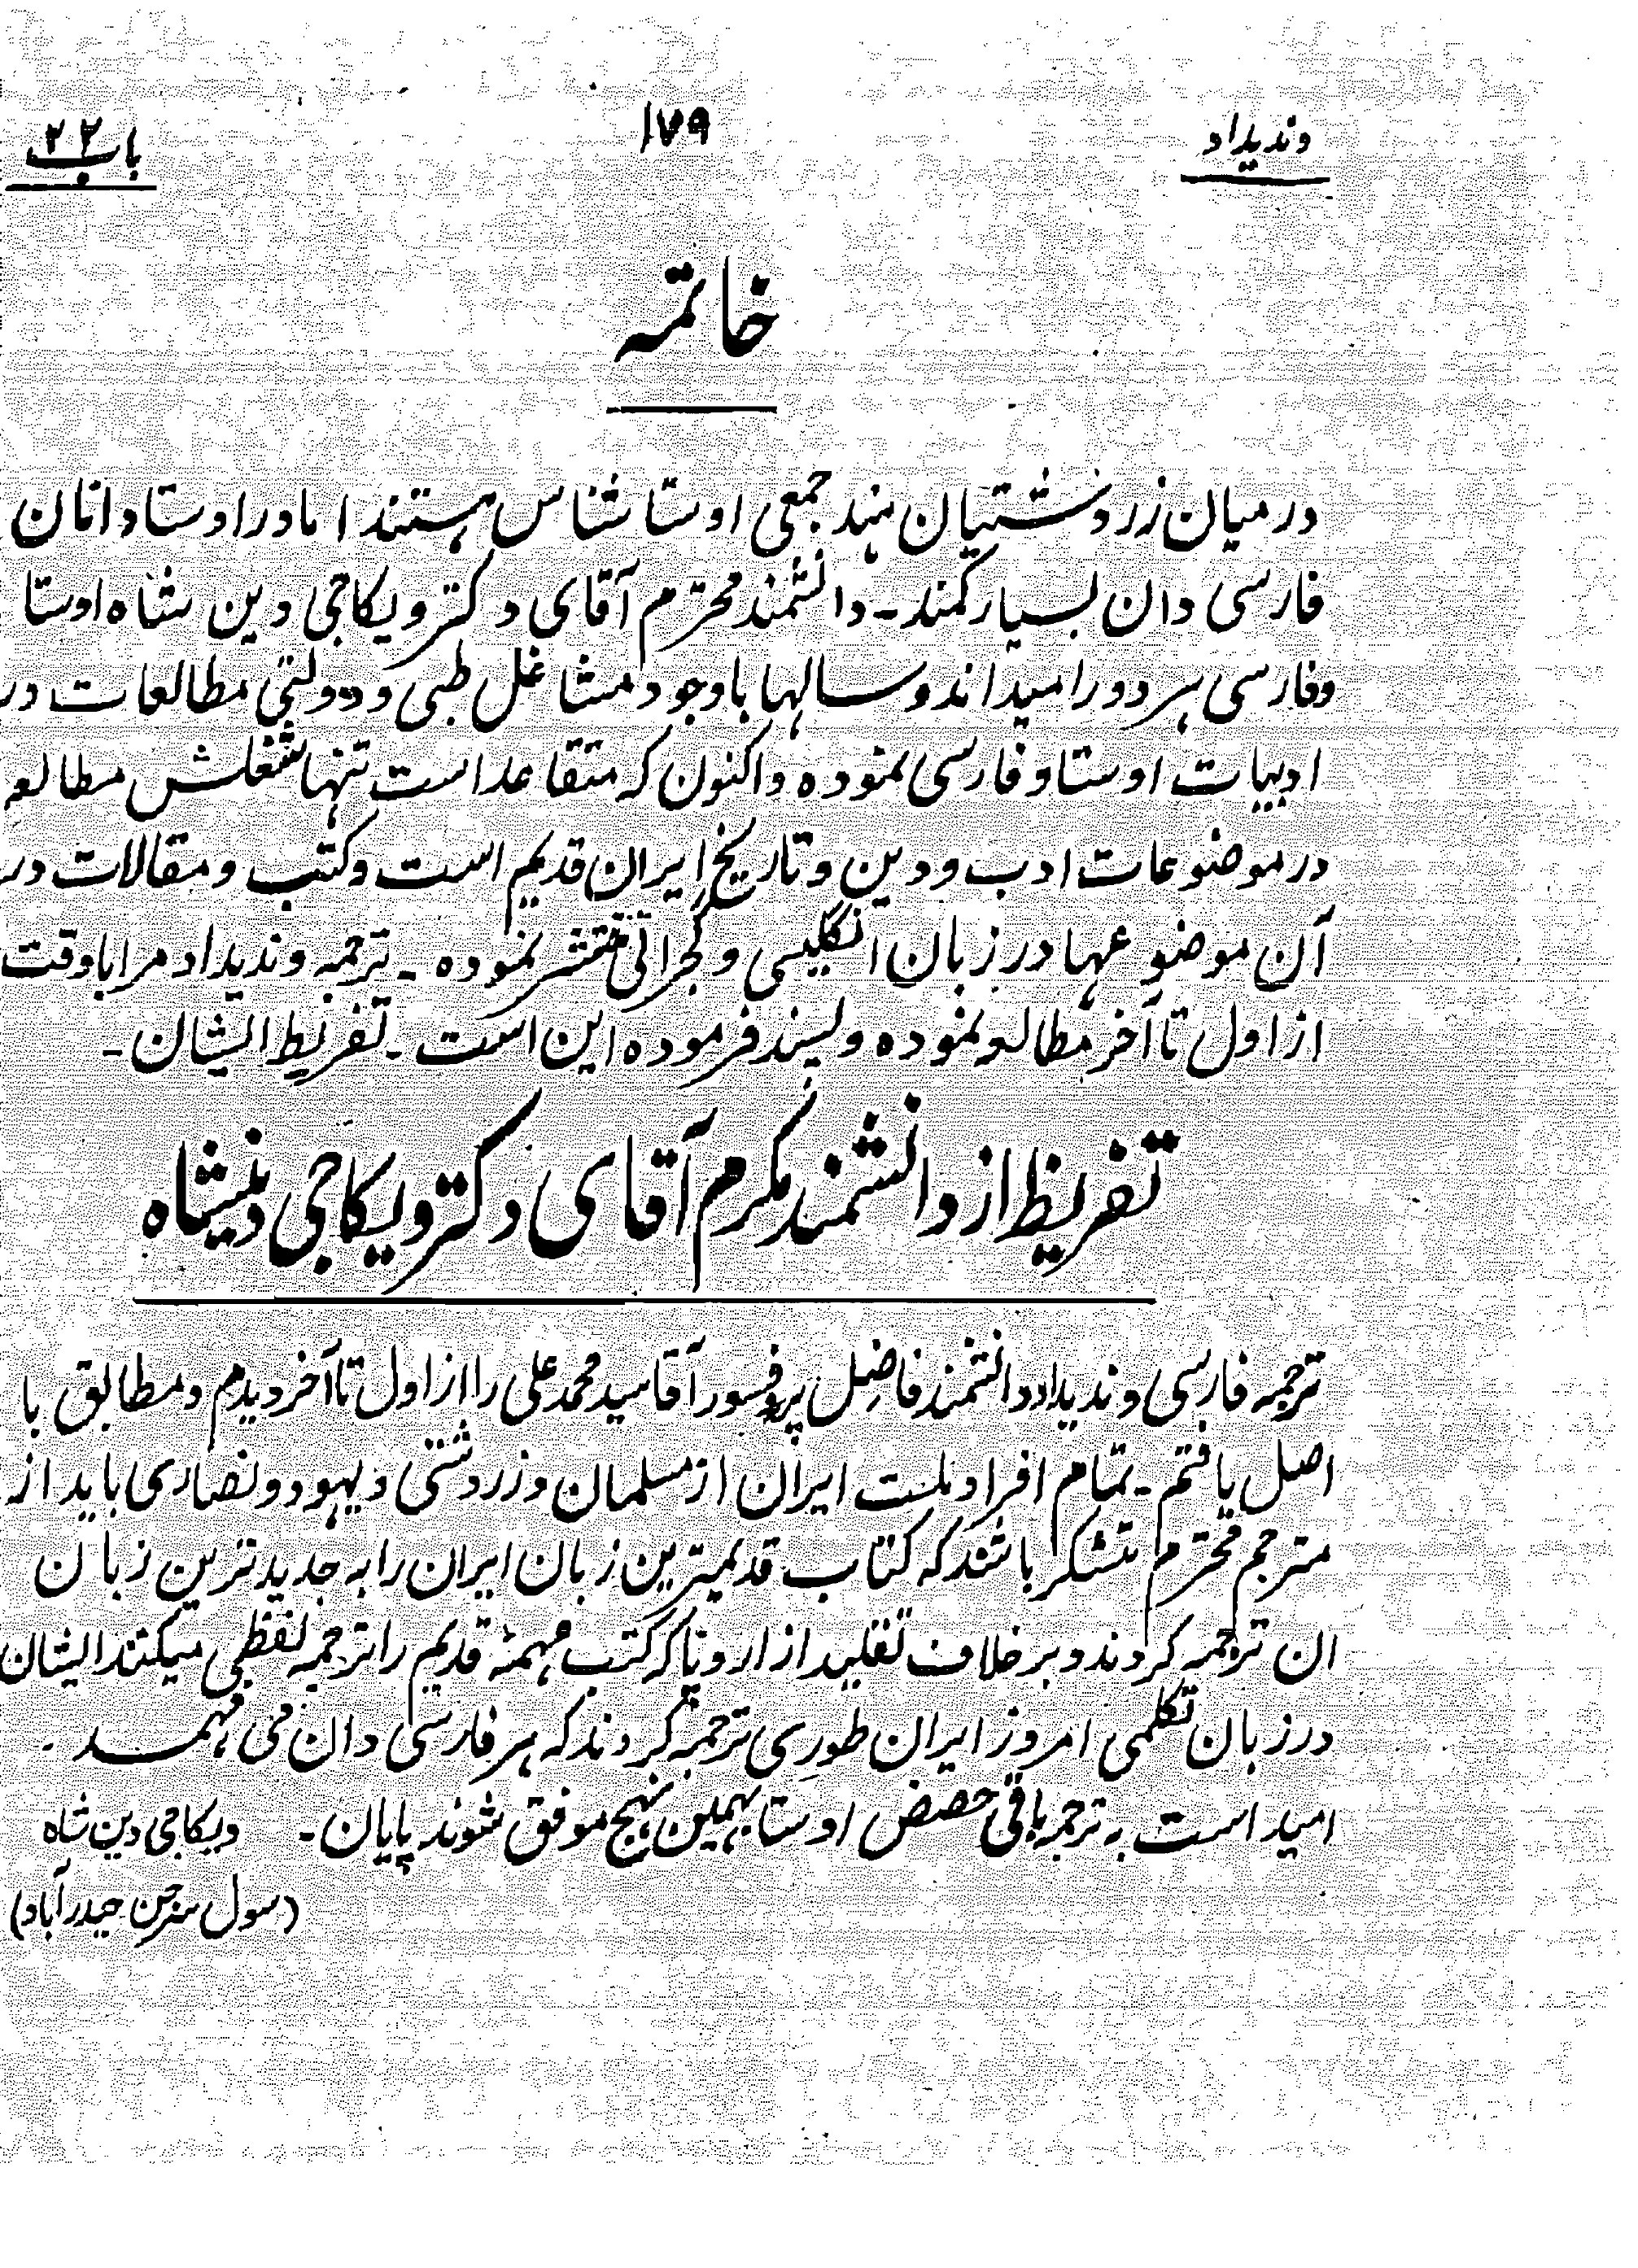 وندیداد
۱۷۹
باب ۲۲
خاتمه
در میان زردشتیان هند جمعی اوستا شناس هستند اما در اوستا دانان
فارسی دان بسیار کمند - دانشمند محترم آقای دکتر ویکاجی دین شاه اوستا
وفارسی هر دو را میداند و سالها با وجود مشاغل طبی و دولتی مطالعات در
ادبیات اوستا و فارسی نموده و اکنون که متقاعد است تنها شغلش مطالعه
در موضوعات ادب و دین و تاریخ ایران قدیم است و کتب و مقالات در
آن موضوعها در زبان انگلیسی و گجراتی منتشر نموده - ترجمه وندیداد مرا با وقت
از اول تا آخر مطالعه نموده و پسند فرموده این است - تفریظ ایشان -
تفریظ از دانشمند مکرم آقای دکتر ویکاجی دینشاه
ترجمه فارسی وندیداد دانشمند فاضل پروفسور آقا سید محمد علی را از اول تا آخر دیدم و مطابق با
اصل یافتم - تمام افراد ملت ایران از مسلمان و زردشتی و یهود و نصاری باید از
مترجم محترم متشکر باشند که کتاب قدیمترین زبان ایران را به جدیدترین زبان
ان ترجمه کردند و بر خلاف تقلید از اروپا که کتب مهمهٔ قدیم را ترجمه لفظی میکنند ایشان
در زبان تکلمی امروز ایران طوری ترجمه کردند که هر فارسی دان می فهمد -
امید است به ترجمه باقی حصص اوستا بهمین نهج موفق شوند پایان - ویکاجی دین شاه
(سول سرجن حیدرآباد)